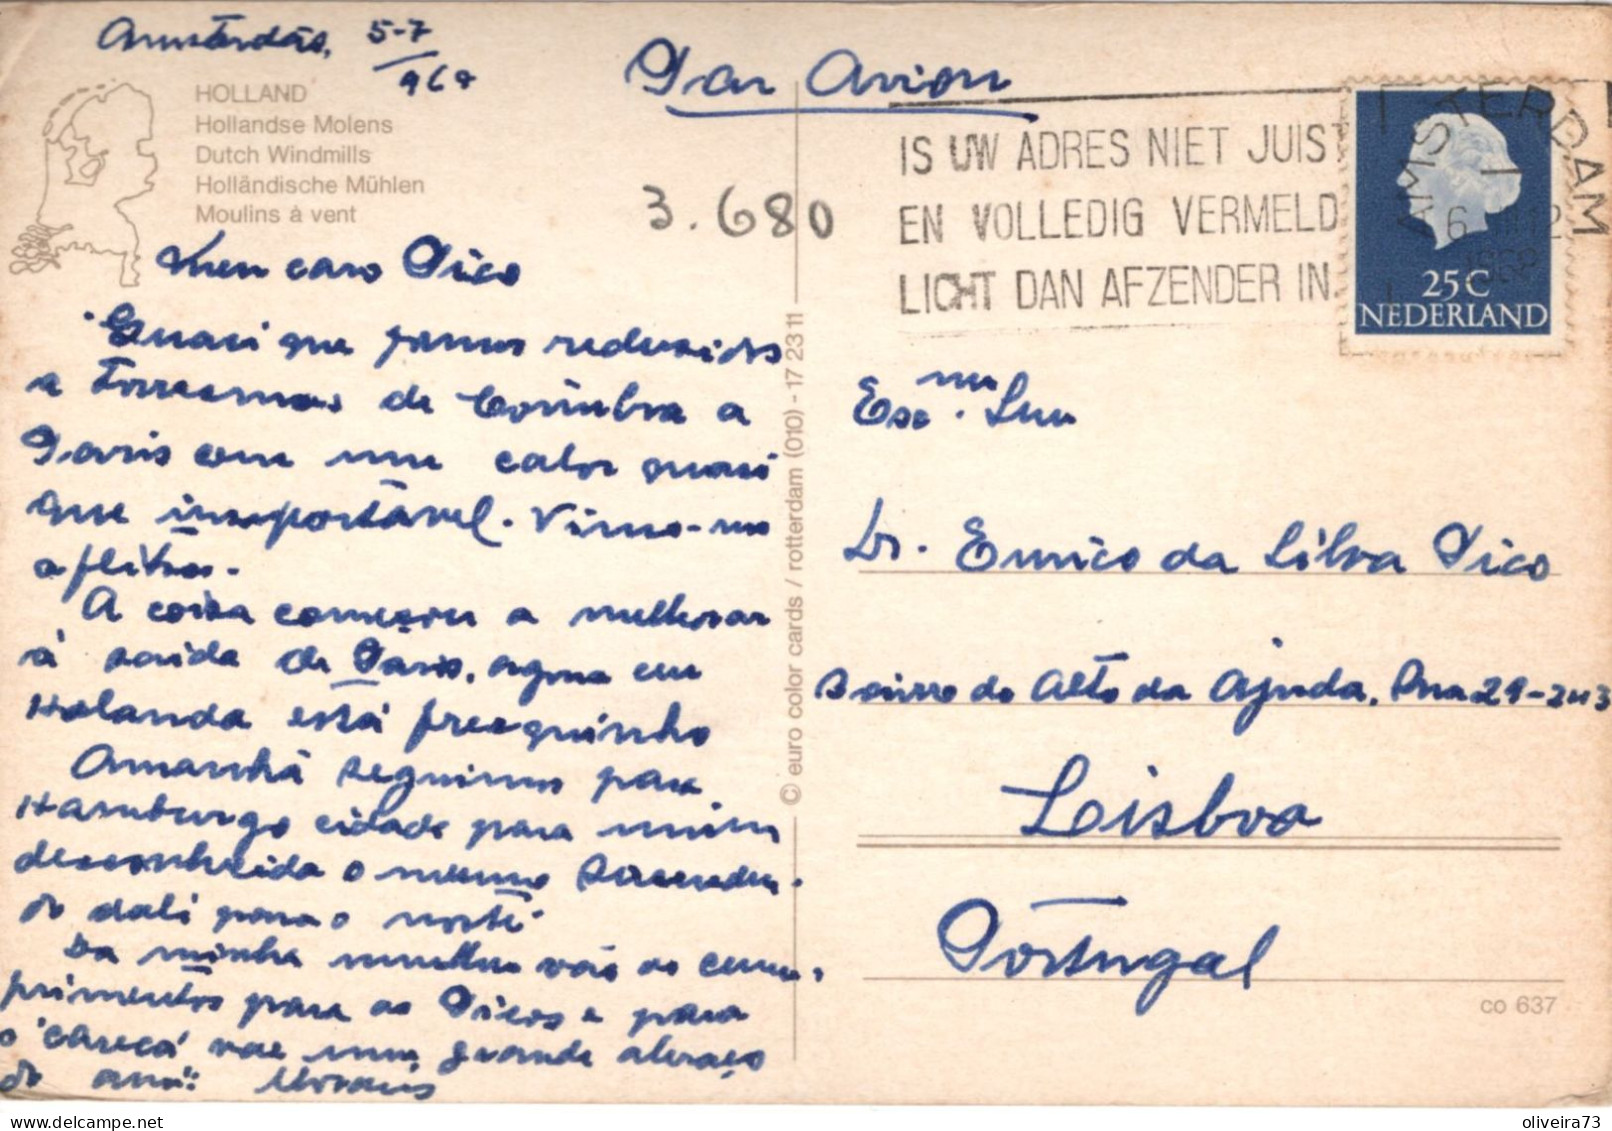 Amsterdão, 5-7/968
Par Avion
HOLLAND
Hollandse Molens
Dutch Windmills
Holländische Mühlen
Moulins à vent
3.680
IS UW ADRES NIET JUIST
EN VOLLEDIG VERMELD
LICHT DAN AFZENDER IN.
AMSTERDAM
6 VII 12
1968
25C
NEDERLAND
Meu caro Pico
Quasi que fomos reduzidos
a torresmos de Coimbra a
Paris com um calor quasi
que insuportável. Vimo-nos
aflitos.
A coisa começou a melhorar
à saída de Paris, agora em
Holanda está fresquinho
Amanhã seguimos para
Hamburgo cidade para mim
desconhecida o mesmo suceden-
do dali para o norte.
Da minha mulher vão os cum-
primentos para os Picos e para
o "careca" vae um grande abraço
do Morais
© euro color cards / rotterdam (010) - 17 23 11
Exmo. Snr
Dr. Eurico da Silva Pico
Bairro do Alto da Ajuda, Rua 29-2º-3
Lisboa
Portugal
co 637
oliveira73